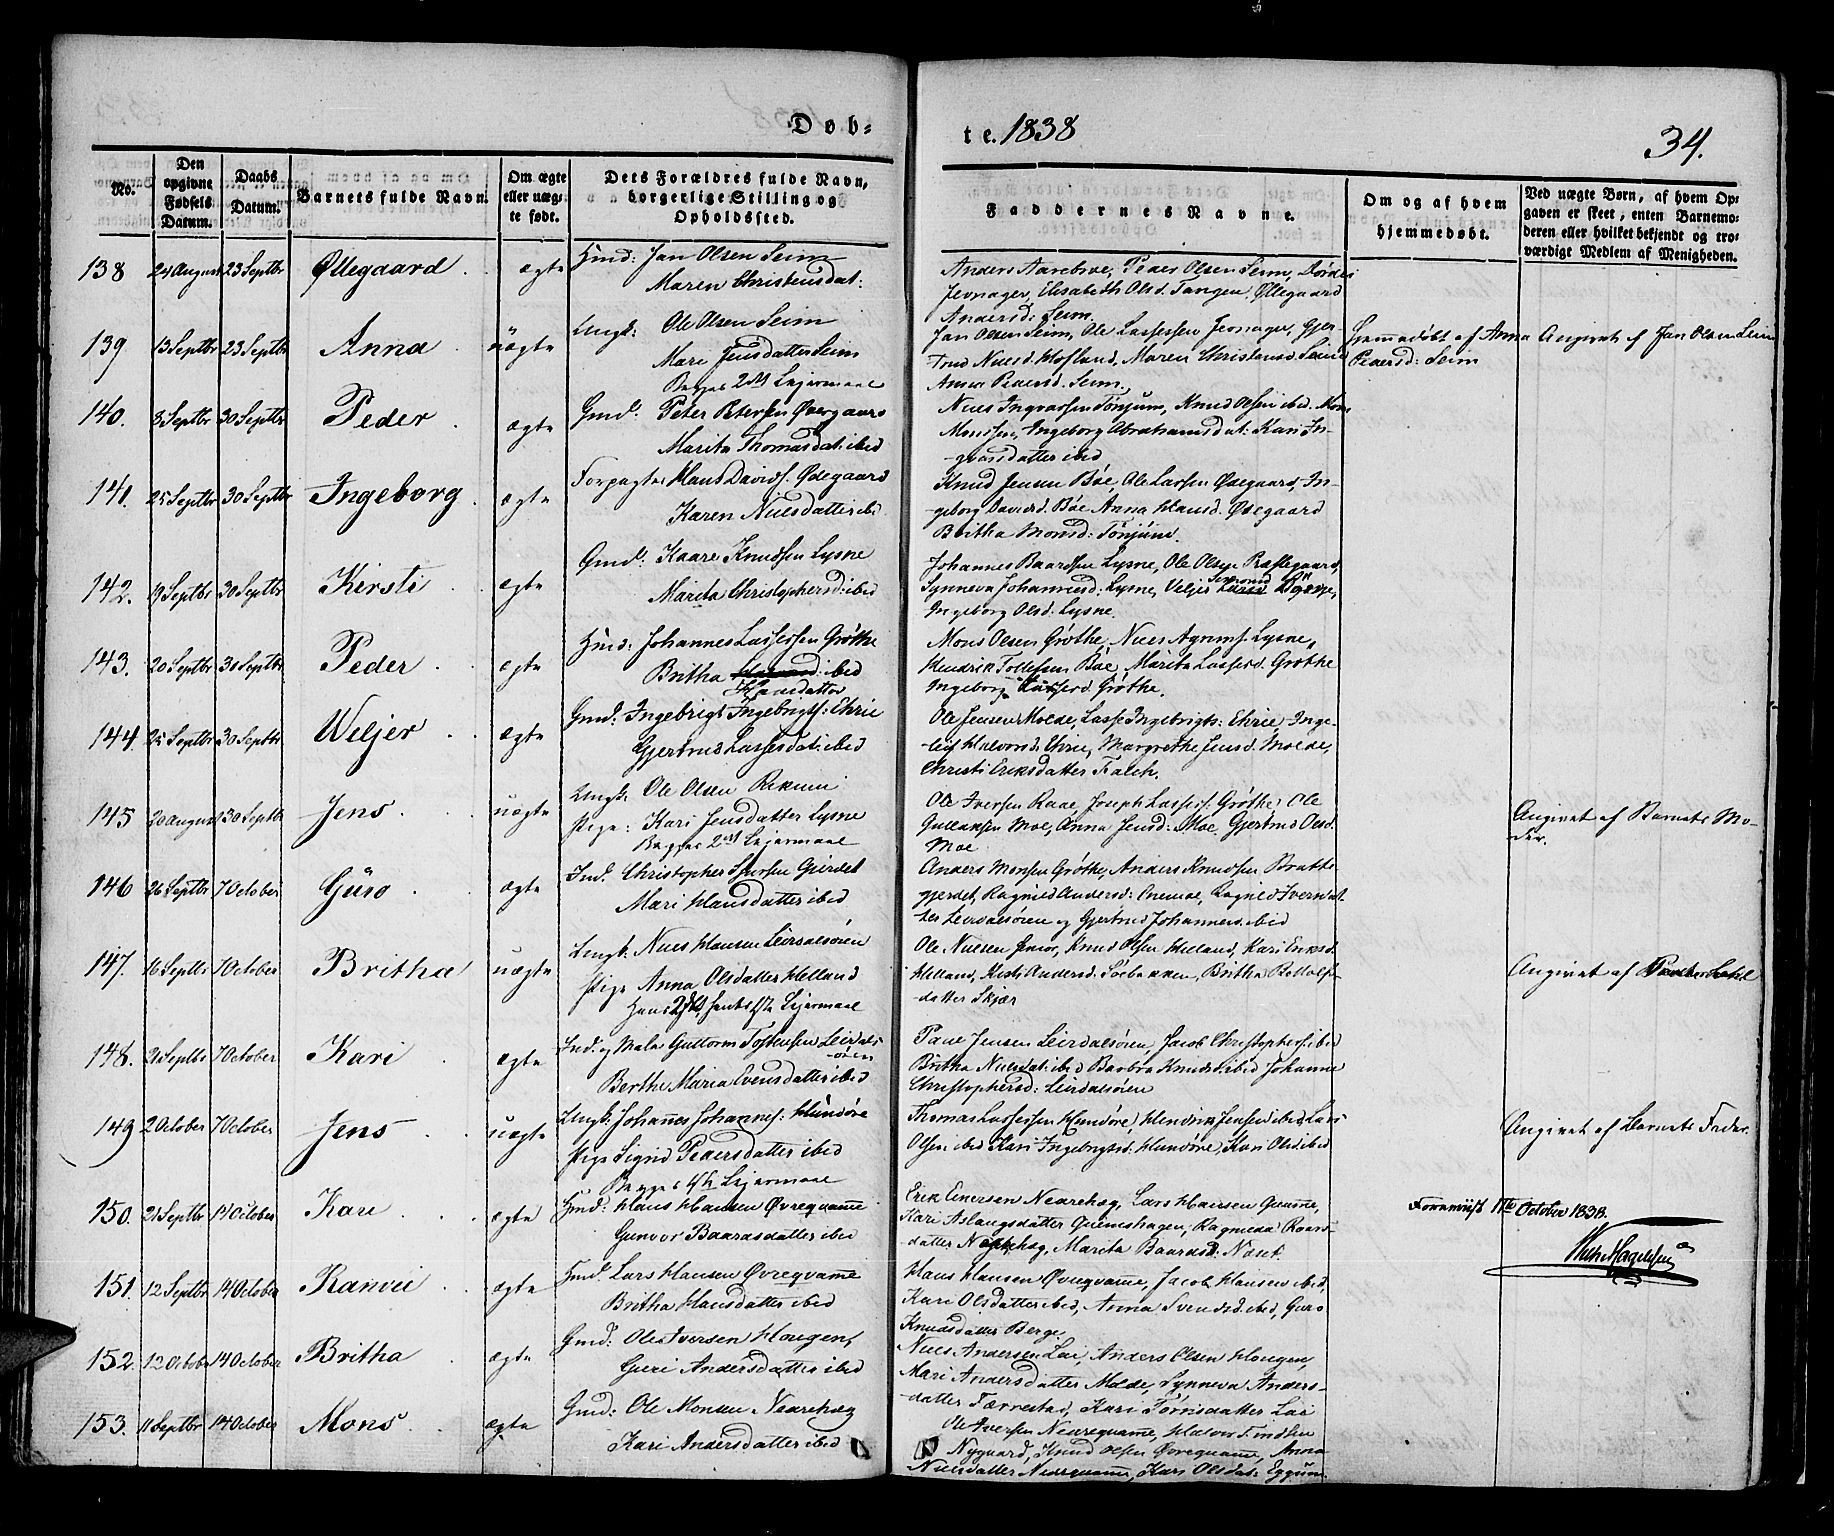 Døb-
te. 1838
34.
No.
Den opgivne Fødsels Datum.
Daabs Datum.
Barnets fulde Navn.
Om ægte eller uægte født.
Dets Forældres fulde Navn, borgerlige Stilling og Opholdssted.
Faddernes Navne.
Om og af hvem hjemmedøbt.
Ved uægte Børn, af hvem Opgaven er skeet, enten Barnemoderen eller hvilket bekjendt og troværdigt Medlem af Menigheden.
138 24 August 23 Septbr Øllegaard ægte Huusd: Jan Olsen Seim
Maren Christensdat:
Anders Aarebroe, Peder Olsen Seim, Dordei
Jevnager, Elisabeth Olsd. Tangen, Øllegaard
Andersd: Seim.
139 13 Septbr 23 Septbr Anna uægte Ungk: Ole Olsen Seim
Mari Jensdatter Seim
Begges 2det Leiermaal
Jan Olsen Seim, Ole Lassessen Jevnager, Gjer-
trud Nielsd. Hofland, Maren Christensd. Seim
Anna Pedersd. Seim.
Hjemmedøbt af Anna
Pedersd: Seim
Angivet af Jan Olsen Seim
140. 8 Septbr 30 Septbr Peder ægte Gmd. Peter Petersen Øvregaard
Marita Thomasdat: ibid
Niels Ingvarssen Tønjum, Knud Olsen ibid. Mons
Monssen, Ingeborg Abrahamsdat: Kari In-
gvarsdatter ibid
141. 25 Septbr 30 Septbr Ingeborg ægte Forpagter Hans Davids. Ødegaard
Karen Nielsdatter ibid
Knud Jensen Bøe, Ole Larsen Ødegaard, In-
geborg Davidsd. Bøe Anna Hansd. Ødegaard
Britha Monsd: Tønjum.
142. 19 Septbr 30 Septbr Kirsti ægte Gmd. Kaare Knudsen Lysne
Marita Christophersd: ibid
Johannes Baardsen Lysne, Ole Olsen Præstegaard,
Synneva Johannesd: Lysne, Veljer
Ingeborg Olsd. Lysne.
143. 20 Septbr 30 Septbr Peder ægte Huusd: Johannes Lassessen Grøthe
Britha ibid
Hansdatter
Mons Olsen Grøthe, Niels Lysne,
Hendrik Tollefsen Bøe, Marita Lassesd. Grøthe
Ingeborg Grøthe.
144. 25 Septbr 30 Septbr Weljer ægte Gmd. Ingebrigt Ingebrigts: Ehrie
Gjertrud Lassesdat: ibid
Ole Jensen Molde, Lasse Ingebrigts: Ehrie, Inge-
leif Halvorsd. Ehrie, Margrethe Jensd. Molde,
Christi Eriksdatter Falch.
145 20 August 30 Septbr Jens uægte Ungk: Ole Olsen
Pige: Kari Jensdatter Lysne
Begges 2det Leiermaal
Ole Iversen Raae, Joseph Lasses. Grøthe, Ole
Gullaksen Moe, Anna Jensd: Moe, Gjertrud Olsd.
Moe
Angivet af Barnets Mo-
der.
146 26 Septbr 7 October Guro ægte Ind. Christopher Gierdet
Mari Hansdatter ibid
Anders Monsen Grøthe, Anders Knudsen Bratte-
gjerdet, Ragnild Andersd: Enemoe, Ragnild Iversdat-
ter Leirdalsøren og Gjertrud Johannesd. ibid
147. 16 Septbr 7 October Britha uægte Ungk: Niels Hansen Leirdalsøren
Pige Anna Olsdatter Helland
Hans 2det, hendes 1ste Leiermaal
Ole Nielsen Knud Olsen Heland, Kari Eriksd.
Helland, Kirsti Andersd: Sorbakken, Britha Botolfs-
datter Skjær
Angivet af
148. 21 Septbr 7 October Kari ægte Ind. og Maler Guttorm Tostensen Leirdals-
øren
Berthe Maria Evensdatter ibid
Paul Jensen Leirdalsøren, Jacob Christophers: ibid
Britha Nielsdat: ibid Barbra Knudsd: ibid Johanne
Christophersd: Leirdalsøren
149 2 October 7 October Jens uægte Ungk: Johannes Johannes: Hundøre
Pige Sigrid Pedersdatter ibid
Begges 1ste Leiermaal
Thomas Lassessen Hundøre, Hendrik Jensen ibid, Lars
Olsen ibid Kari Ingebrigtsd: Hundøre, Kari Olsd. ibid
Angivet af Barnets Fader.
150. 21 Septbr 14 October Kari ægte Huusd: Hans Hansen Øvreqvamme
Gunvor Baardsdatter ibid
Erik Einersen Nedrehæg, Lars Hansen Qvamme,
Kari Aslaugsdatter Qvemshagen, Ragnilda Roars-
datter Nedrehæg, Marita Baardsd: Næset.
Foreviist 17de October 1838.
151. 12 Septbr 14 October Ranvei ægte Huusd. Lars Hansen Øvreqvamme
Britha Hansdatter ibid
Hans Hansen Øvreqvamme, Jacob Hansen ibid,
Kari Olsdatter ibid, Anna Svendsd. ibid, Guro
Knudsdatter Berge
152. 12 October 14 October Britha ægte Gmd: Ole Iversen Hougen,
Guri Andersdatter ibid
Niels Andersen Lie, Anders Olsen Hougen,
Mari Andersdatter Molde, Synneva Anders-
datter Tærrestad, Kari Tørrisdatter Lie
153. 11 Septbr 14 October Mons ægte Gmd: Ole Monsen Nedrehæg
Kari Andersdatter ibid
Ole Iversen Nedreqvamme, Halvor Findsen
Nygaard, Knud Olsen Øvreqvamme, Anna
Nielsdatter Nedreqvamme, Kari Olsdat: Eggum